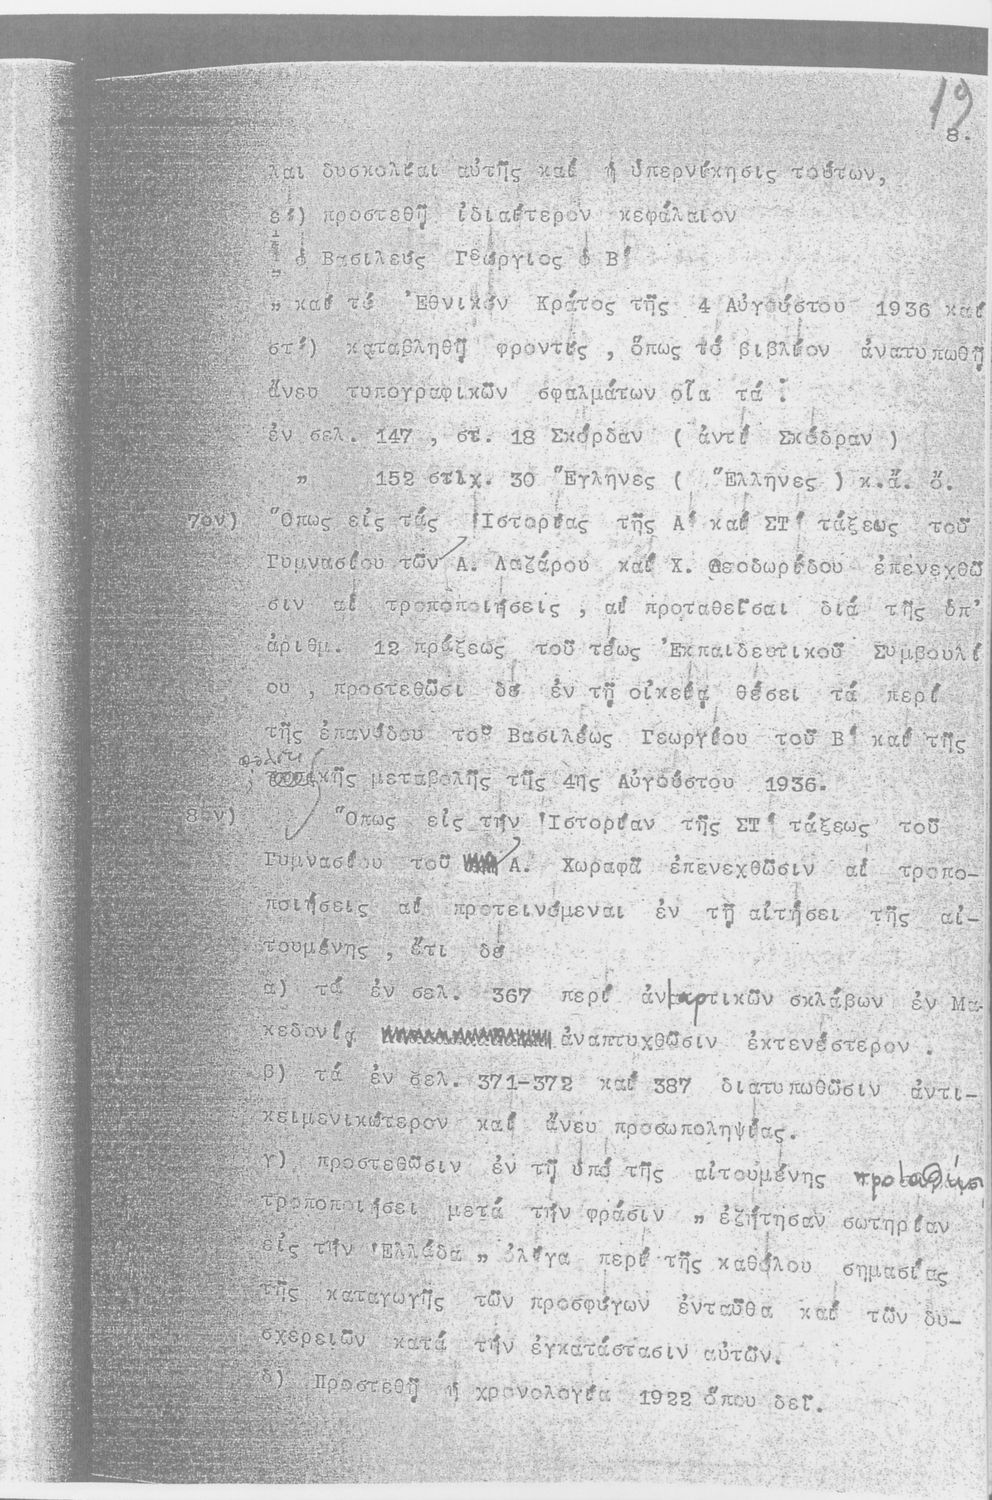 19
8.
λαι δυσκολίαι αὐτῆς καί ἡ ὑπερνίκησις τούτων,
ε΄) προστεθῇ ἰδιαίτερον κεφάλαιον
ὁ Βασιλεύς Γεώργιος ὁ Β΄
„ καί τό Ἐθνικόν Κράτος τῆς 4 Αὐγούστου 1936 καί
στ΄) καταβληθῇ φροντίς , ὅπως τό βιβλίον ἀνατυπωθῇ
ἄνευ τυπογραφικῶν σφαλμάτων οἷα τά :
ἐν σελ. 147 , στ. 18 Σκόρδαν ( ἀντί Σκόδραν )
„ 152 στιχ. 30 Ἔγληνες ( Ἕλληνες ) κ.ἄ. ὅ.
7ον) Ὅπως εἰς τάς Ἱστορίας τῆς Α΄ καί ΣΤ΄ τάξεως τοῦ
Γυμνασίου τῶν Α. Λαζάρου καί Χ. Θεοδωρίδου ἐπενεχθῶ
σιν αἱ τροποποιήσεις , αἱ προταθεῖσαι διά τῆς ὑπ'
ἀριθμ. 12 πράξεως τοῦ τέως Ἐκπαιδευτικοῦ Συμβουλί
ου , προστεθῶσι δέ ἐν τῇ οἰκείᾳ θέσει τά περί
τῆς ἐπανόδου τοῦ Βασιλέως Γεωργίου τοῦ Β΄ καί τῆς
πολιτικῆς μεταβολῆς τῆς 4ης Αὐγούστου 1936.
8ον) Ὅπως εἰς τήν Ἱστορίαν τῆς ΣΤ΄ τάξεως τοῦ
Γυμνασίου τοῦ Α. Χωραφᾶ ἐπενεχθῶσιν αἱ τροπο-
ποιήσεις αἱ προτεινόμεναι ἐν τῇ αἰτήσει τῆς αἰ-
τουμένης , ἔτι δέ
α) τά ἐν σελ. 367 περί ἀναρτικῶν σκλάβων ἐν Μα-
κεδονίᾳ ἀναπτυχθῶσιν ἐκτενέστερον .
β) τά ἐν σελ. 371-372 καί 387 διατυπωθῶσιν ἀντι-
κειμενικώτερον καί ἄνευ προσωποληψίας.
γ) προστεθῶσιν ἐν τῇ ὑπό τῆς αἰτουμένης
τροποποιήσει μετά τήν φράσιν „ ἐζήτησαν σωτηρίαν
εἰς τήν Ἑλλάδα „ ὀλίγα περί τῆς καθόλου σημασίας
τῆς καταγωγῆς τῶν προσφύγων ἐνταῦθα καί τῶν δυ-
σχερειῶν κατά τήν ἐγκατάστασιν αὐτῶν.
δ) Προστεθῇ ἡ χρονολογία 1922 ὅπου δεῖ.